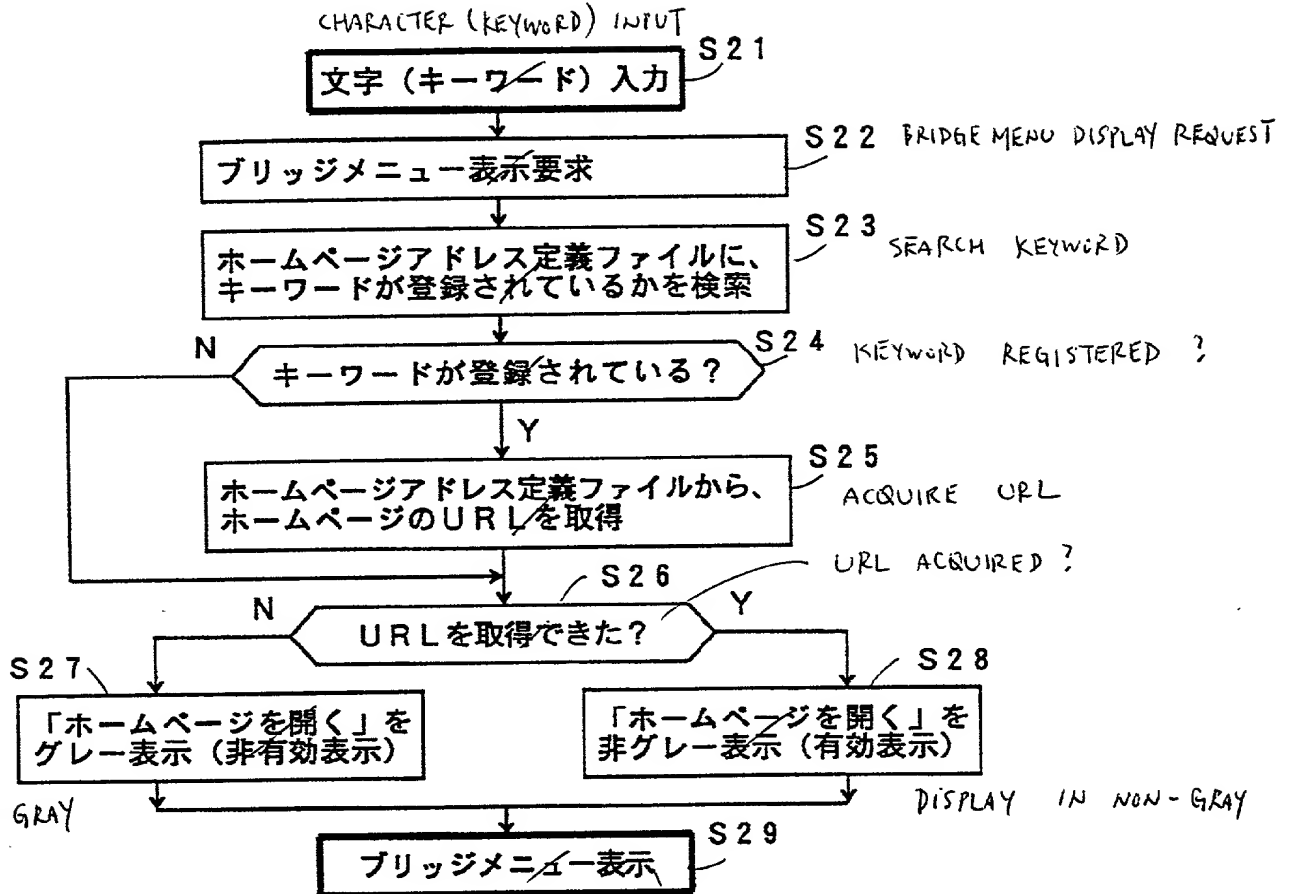 CHARACTER (KEYWORD) INPUT
S21
文字(キーワード)入力
S22 BRIDGE MENU DISPLAY REQUEST
ブリッジメニュー表示要求
S23 SEARCH KEYWORD
ホームページアドレス定義ファイルに、
キーワードが登録されているかを検索
N
S24 KEYWORD REGISTERED ?
キーワードが登録されている?
Y
S25
ACQUIRE URL
ホームページアドレス定義ファイルから、
ホームページのURLを取得
S26
URL ACQUIRED ?
N
Y
URLを取得できた?
S27
S28
「ホームページを開く」を
グレー表示(非有効表示)
「ホームページを開く」を
非グレー表示(有効表示)
GRAY
DISPLAY IN NON-GRAY
S29
ブリッジメニュー表示